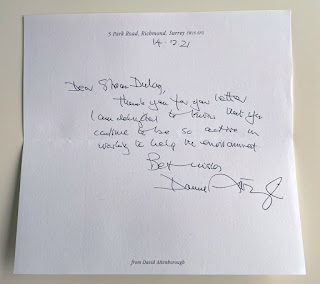 5 Park Road, Richmond, Surrey
14.12.21
Dear
Thank you for your letter
I am delighted to know that you
continue to be so active in
working to help the environment
Best wishes
David
from David Attenborough